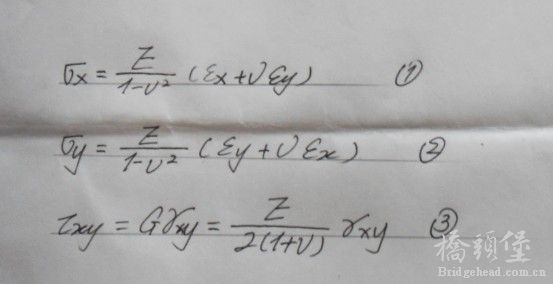 σx = E/(1-ν²) (εx + νεy) ①
σy = E/(1-ν²) (εy + νεx) ②
τxy = Gγxy = E/(2(1+ν)) γxy ③
橋頭堡
Bridgehead.com.cn